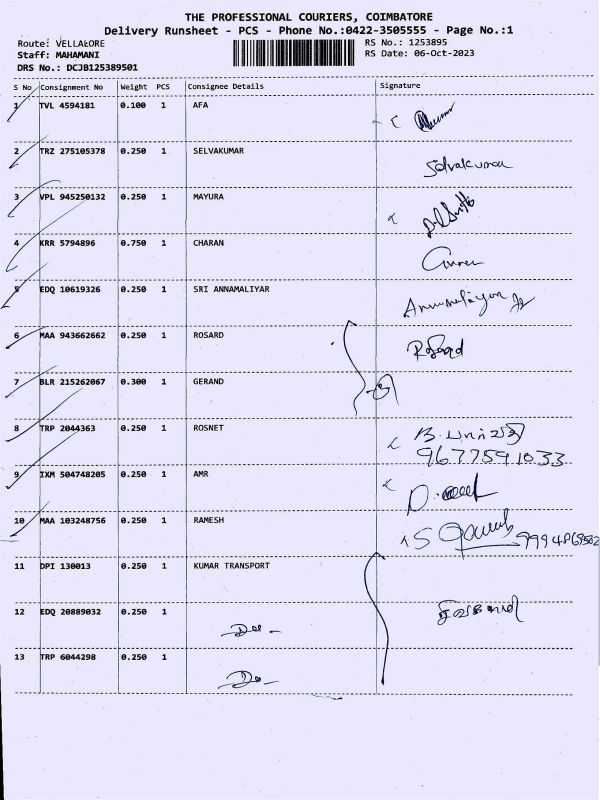 THE PROFESSIONAL COURIERS, COIMBATORE
Delivery Runsheet - PCS - Phone No.:0422-3505555 - Page No.:1
Route: VELLALORE
RS No.: 1253895
Staff: MAHAMANI
RS Date: 06-Oct-2023
DRS No.: DCJB125389501
S No Consignment No Weight PCS Consignee Details Signature
1 TVL 4594181 0.100 1 AFA
2 TRZ 275105378 0.250 1 SELVAKUMAR Selvakumar
3 VPL 945250132 0.250 1 MAYURA
4 KRR 5794896 0.750 1 CHARAN
5 EDQ 10619326 0.250 1 SRI ANNAMALIYAR
6 MAA 943662662 0.250 1 ROSARD
7 BLR 215262067 0.300 1 GERAND
8 TRP 2044363 0.250 1 ROSNET B.
9677591033
9 IXM 504748205 0.250 1 AMR
10 MAA 103248756 0.250 1 RAMESH
11 DPI 130013 0.250 1 KUMAR TRANSPORT
12 EDQ 20889032 0.250 1
13 TRP 6044298 0.250 1